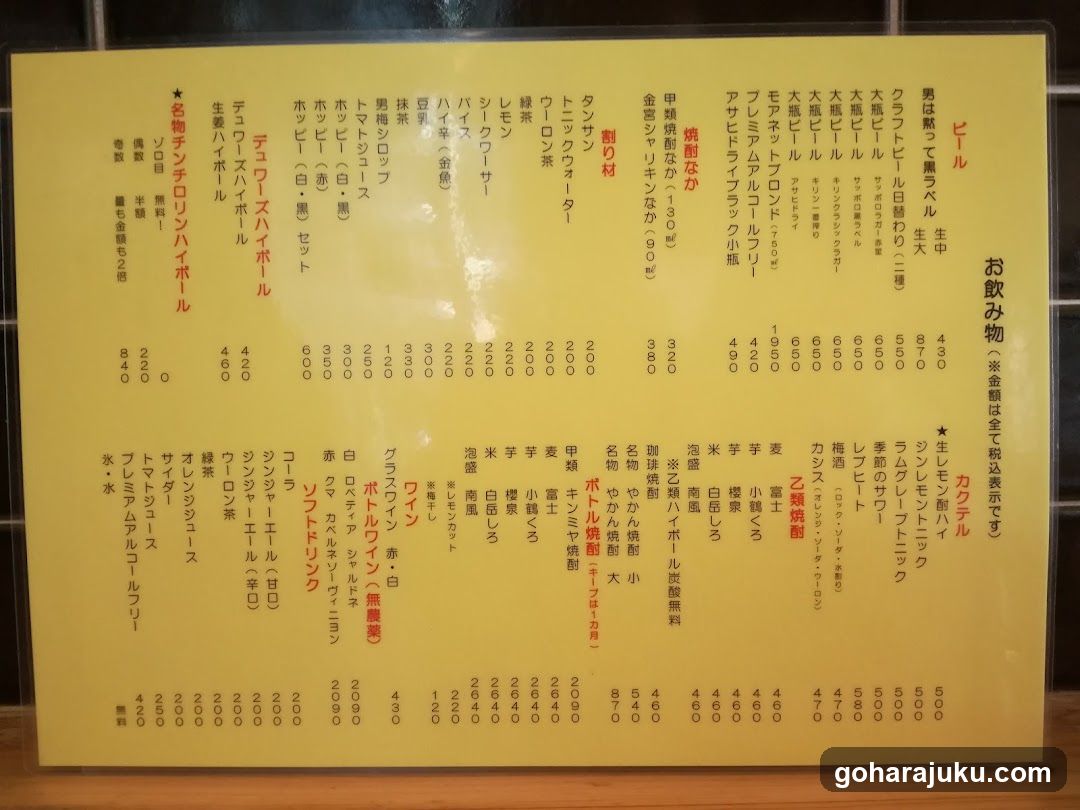 お飲み物(※金額は全て税込表示です)
ビール
男は黙って黒ラベル 生中 430
生大 870
クラフトビール日替わり(二種) 550
大瓶ビール サッポロラガー赤星 650
大瓶ビール サッポロ黒ラベル 650
大瓶ビール キリンクラシックラガー 650
大瓶ビール キリン一番搾り 650
大瓶ビール アサヒドライ 650
モアネットブロンド(750㎖) 1950
プレミアムアルコールフリー 420
アサヒドライブラック小瓶 490
焼酎なか
甲類焼酎なか(130㎖) 320
金宮シャリキンなか(90㎖) 380
割り材
タンサン 200
トニックウォーター 200
ウーロン茶 200
緑茶 200
レモン 220
シークワーサー 220
バイス 220
ハイ辛(金魚) 220
豆乳 300
抹茶 330
男梅シロップ 120
トマトジュース 250
ホッピー(白・黒) 300
ホッピー(赤) 350
ホッピー(白・黒)セット 600
デュワーズハイボール
デュワーズハイボール 420
生姜ハイボール 460
★名物チンチロリンハイボール
ゾロ目 無料! 0
偶数 半額 220
奇数 量も金額も2倍 840
カクテル
★生レモン酎ハイ 500
ジンレモントニック 500
ラムグレープトニック 500
季節のサワー 500
レブヒート 580
梅酒(ロック・ソーダ・水割り) 470
カシス(オレンジ・ソーダ・ウーロン) 470
乙類焼酎
麦 富士 460
芋 小鶴くろ 460
芋 櫻泉 460
米 白岳しろ 460
泡盛 南風 460
※乙類ハイボール炭酸無料
珈琲焼酎 460
名物 やかん焼酎 小 540
名物 やかん焼酎 大 870
ボトル焼酎(キープは1カ月)
甲類 キンミヤ焼酎 2090
麦 富士 2640
芋 小鶴くろ 2640
芋 櫻泉 2640
米 白岳しろ 2640
泡盛 南風 2640
※レモンカット 220
※梅干し 120
ワイン
グラスワイン 赤・白 430
ボトルワイン(無農薬)
白 ロペティア シャルドネ 2090
赤 クマ カベルネソーヴィニヨン 2090
ソフトドリンク
コーラ 200
ジンジャーエール(甘口) 200
ジンジャーエール(辛口) 200
ウーロン茶 200
緑茶 200
オレンジジュース 200
サイダー 200
トマトジュース 250
プレミアムアルコールフリー 420
氷・水 無料
goharajuku.com